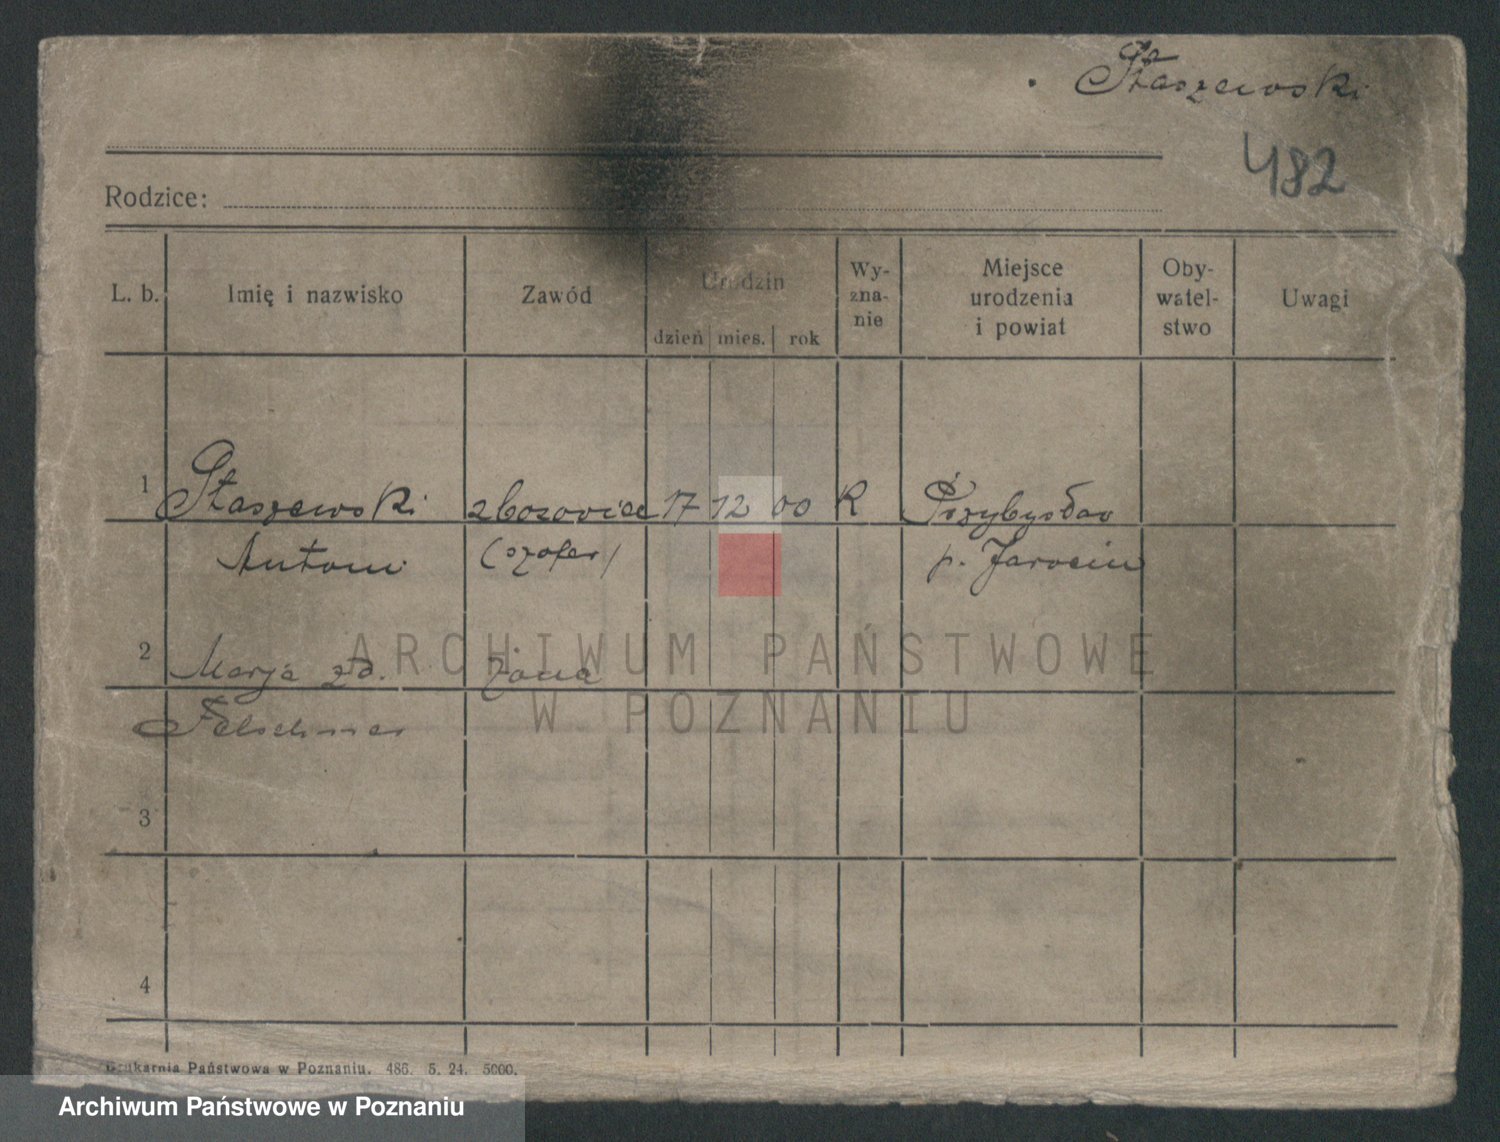 Staszewski
482
Rodzice:
L. b. Imię i nazwisko Zawód Urodzin dzień mies. rok Wy-zna-nie Miejsce urodzenia i powiat Oby-watel-stwo Uwagi
1 Staszewski 17 12 00 R Przybysław
Antoni (szofer) p. Jarocin
2 Marja zd. żona
3
4
Drukarnia Państwowa w Poznaniu. 486. 5. 24. 5000.
ARCHIWUM PAŃSTWOWE
W POZNANIU
Archiwum Państwowe w Poznaniu